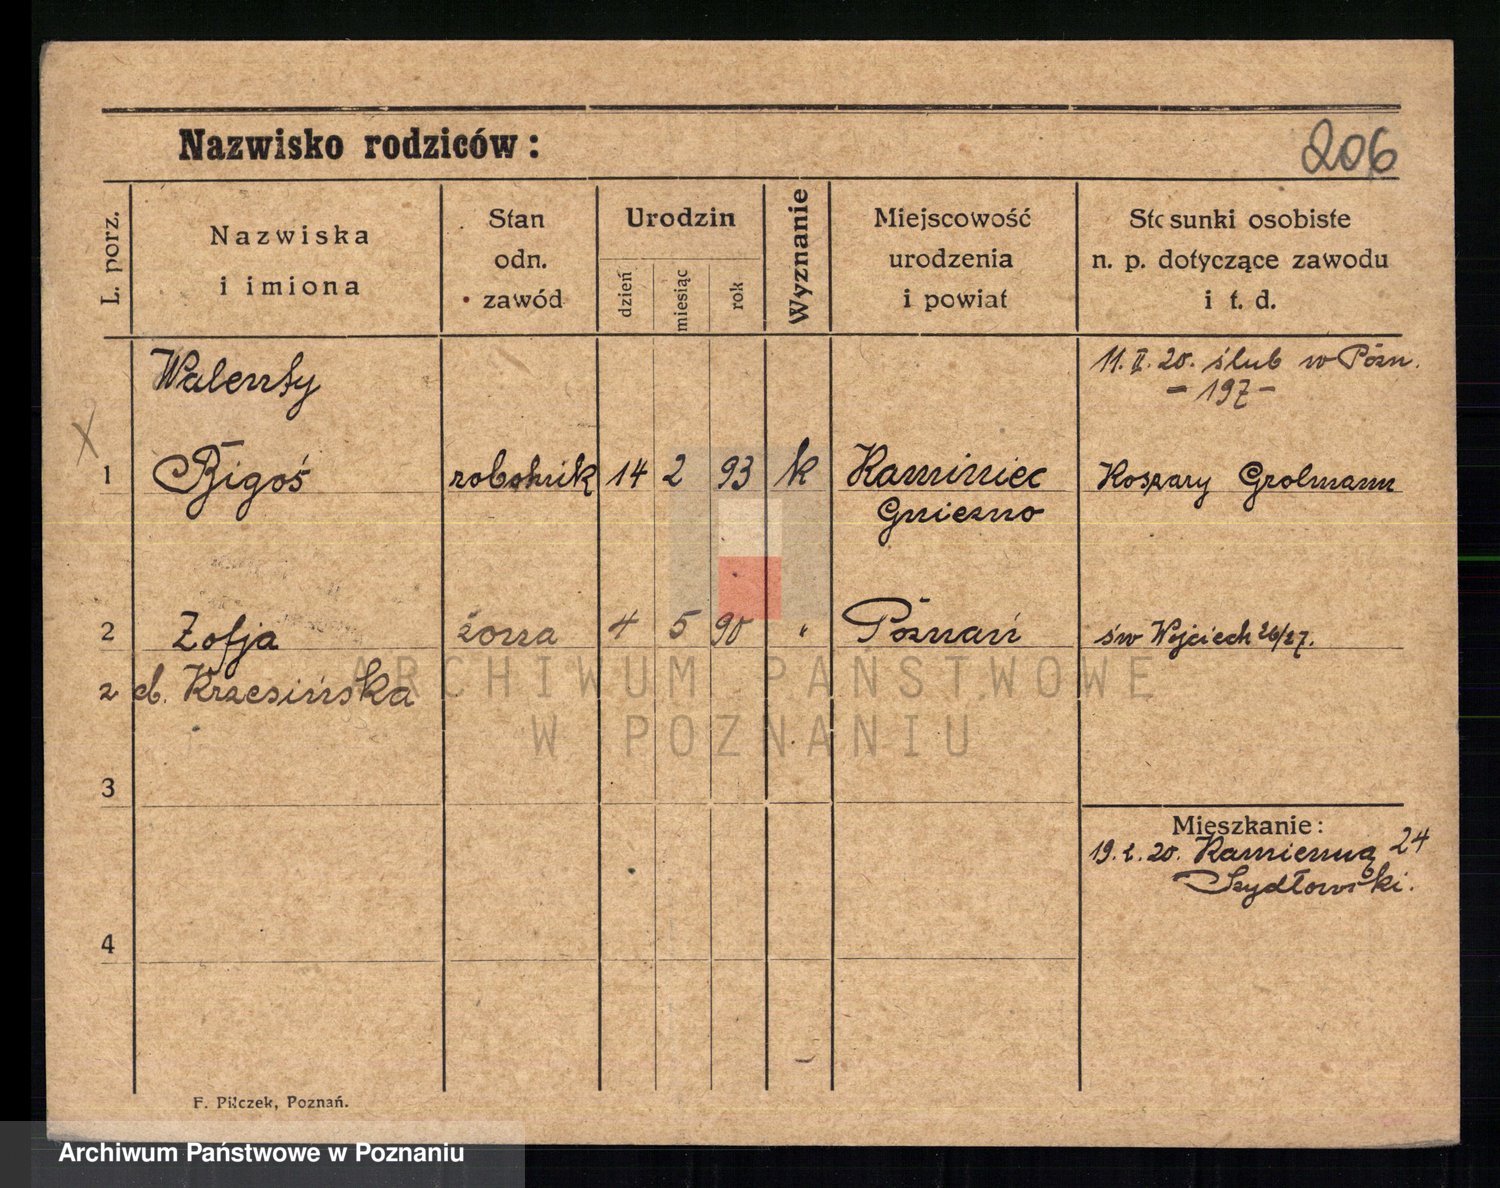 Nazwisko rodziców:
206
L. porz.
Nazwiska
i imiona
Stan
odn.
zawód
Urodzin
dzień
miesiąc
rok
Wyznanie
Miejscowość
urodzenia
i powiat
Stosunki osobiste
n. p. dotyczące zawodu
i t. d.
Walenty
11. II. 20. ślub w Pozn.
- 197 -
1 Bigoś robotnik 14 2 93 k Kaminiec Koszary Grolmann
Gniezno
2 Zofja żona 4 5 90 " Poznań św Wojciech 26/27.
z d. Krzesińska
ARCHIWUM PAŃSTWOWE
W POZNANIU
3
Mieszkanie:
19. 2. 20. Kamienna 24
Szydłowski.
4
F. Pilczek, Poznań.
Archiwum Państwowe w Poznaniu